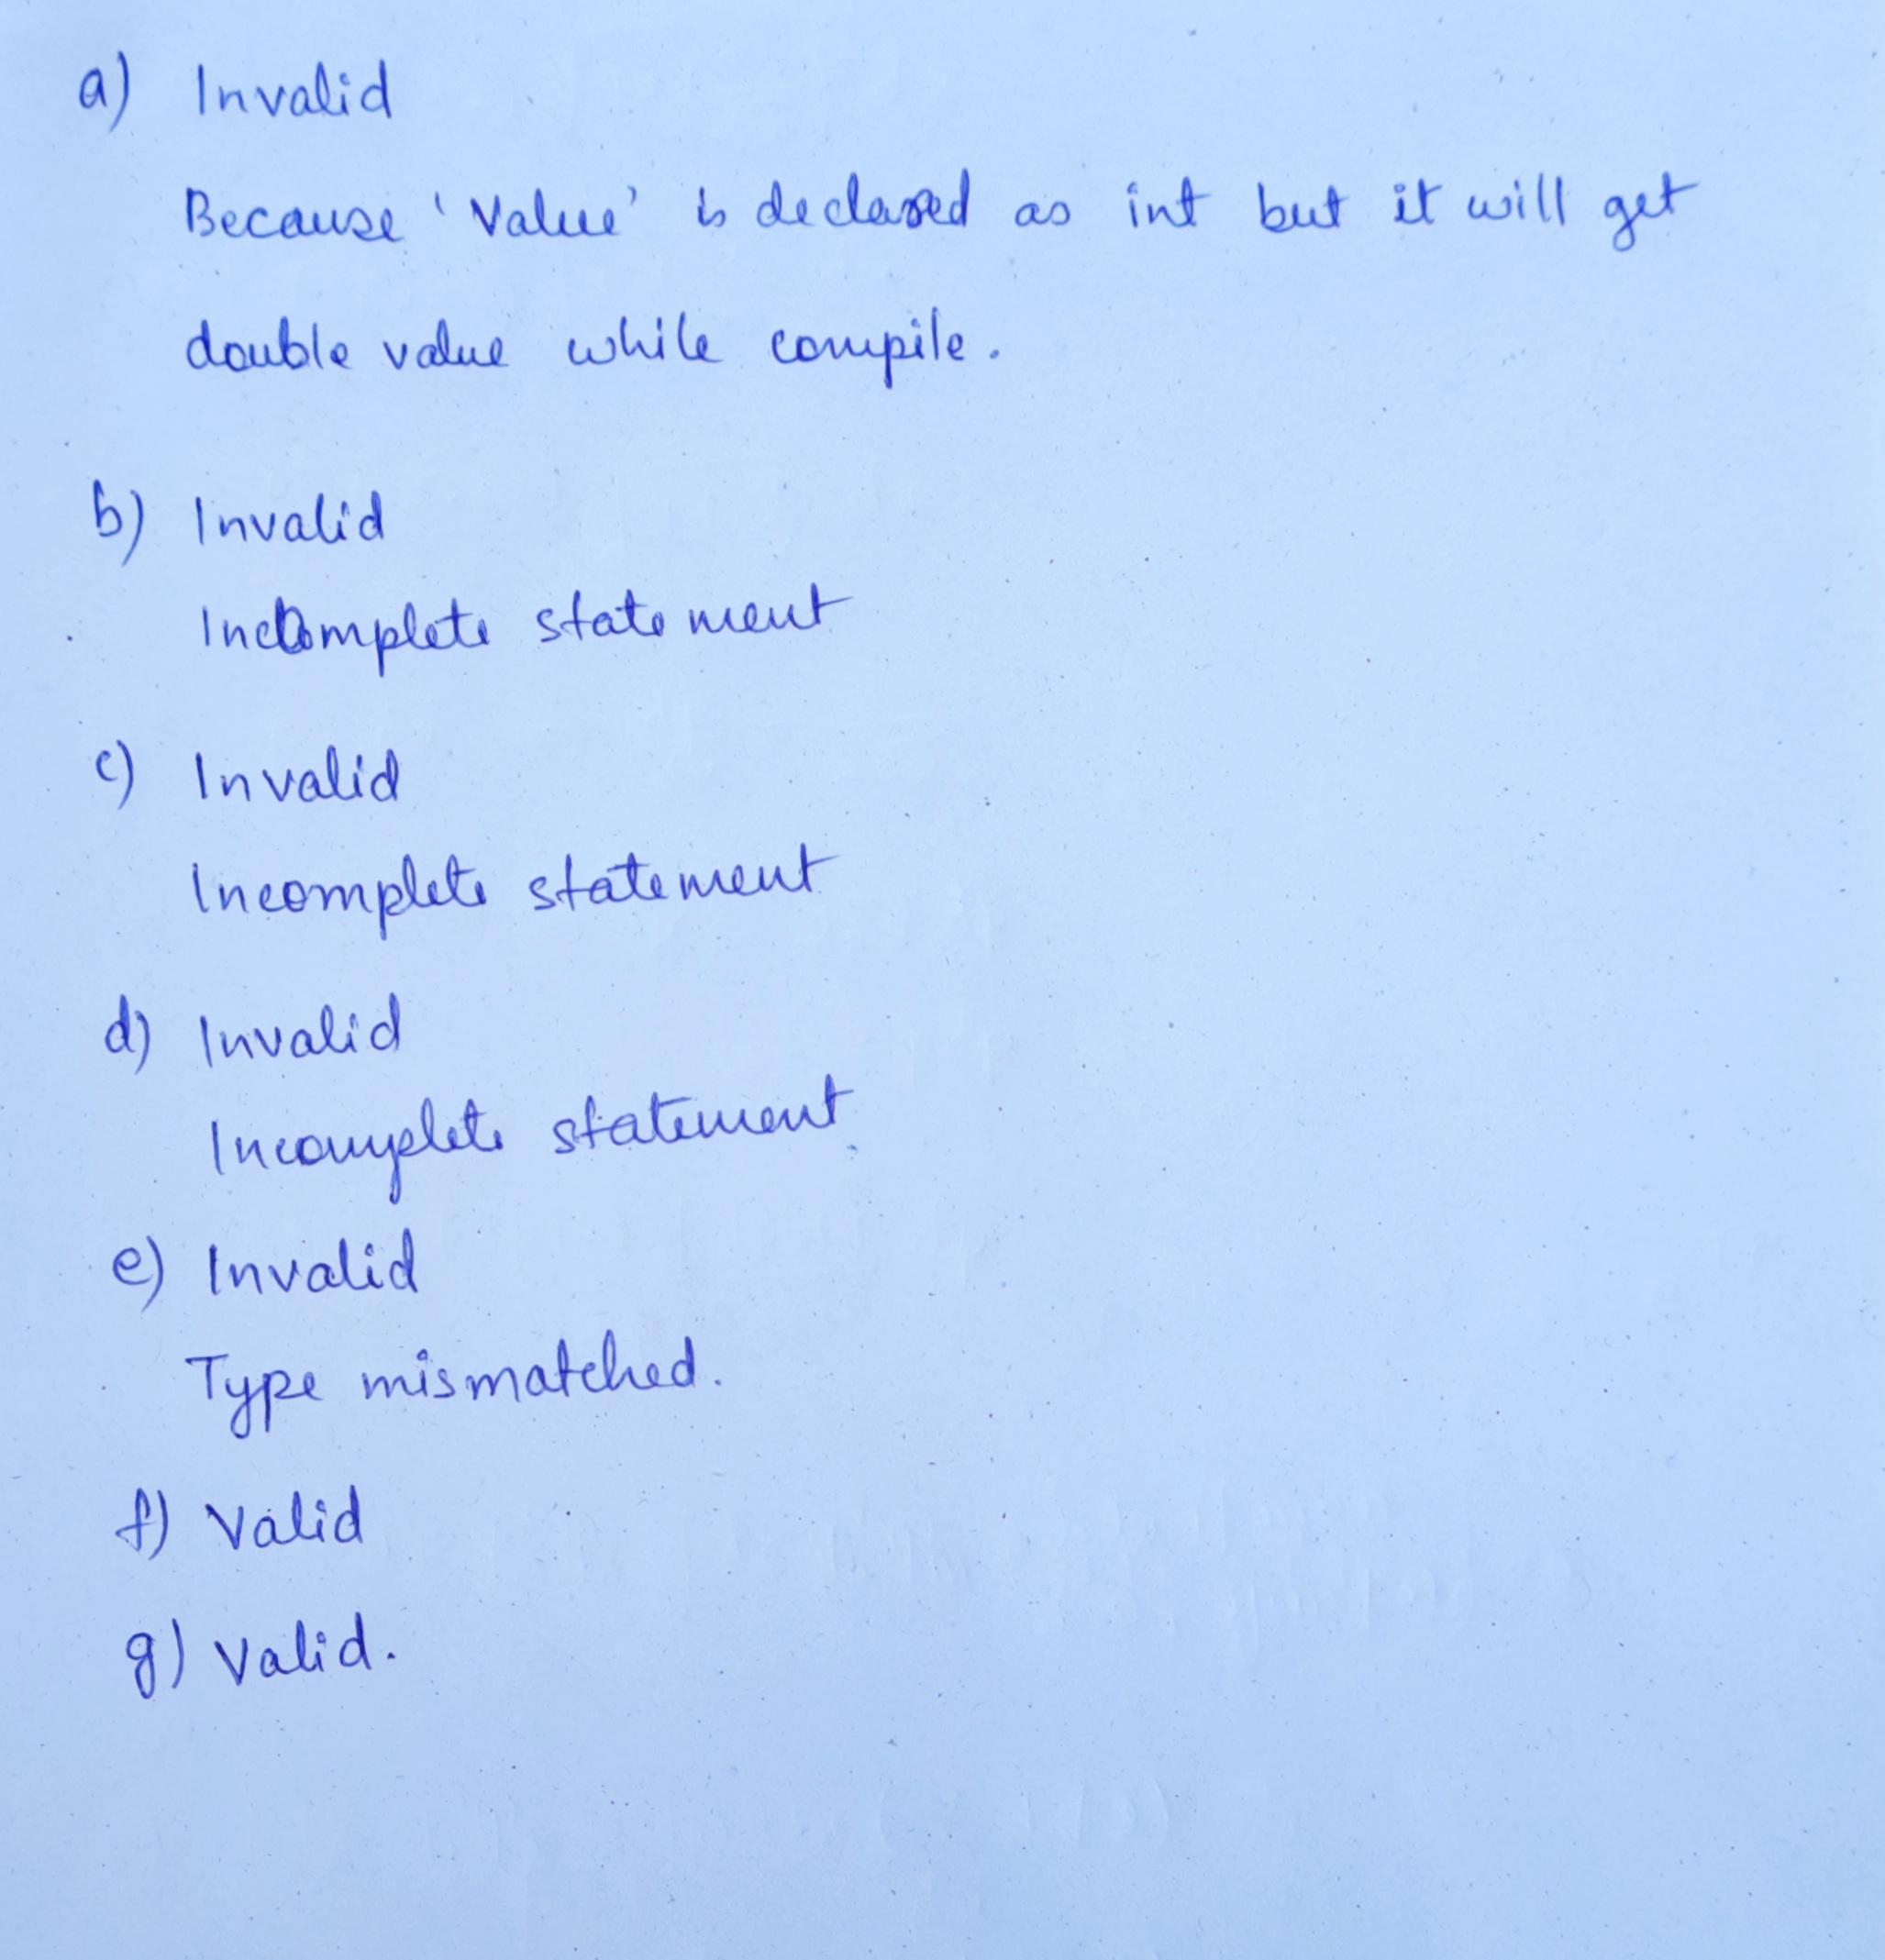 a) Invalid
Because 'Value' is declared as int but it will get
double value while compile.
b) Invalid
Incomplete statement
c) Invalid
Incomplete statement
d) Invalid
Incomplete statement
e) Invalid
Type mismatched.
f) Valid
g) Valid.